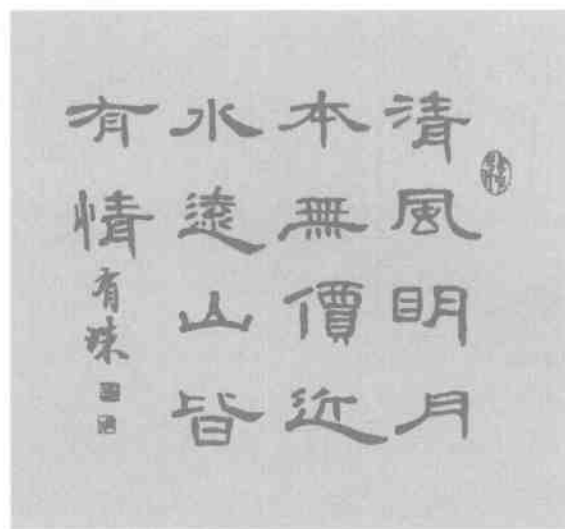 清風明月
本無價近
水遠山皆
有情
有珠